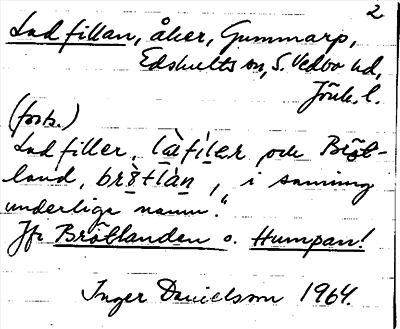 2
Ladfillan, åker, Gummarp,
Edshults sn, S. Vedbo hd,
Jönk. l.
(forts.)
Ladfiller, làfìler och Bröt-
land, brötlàn, i sanning
underliga namn."
Jfr Brötlanden o. Humpan!
Inger Danielsson 1964.